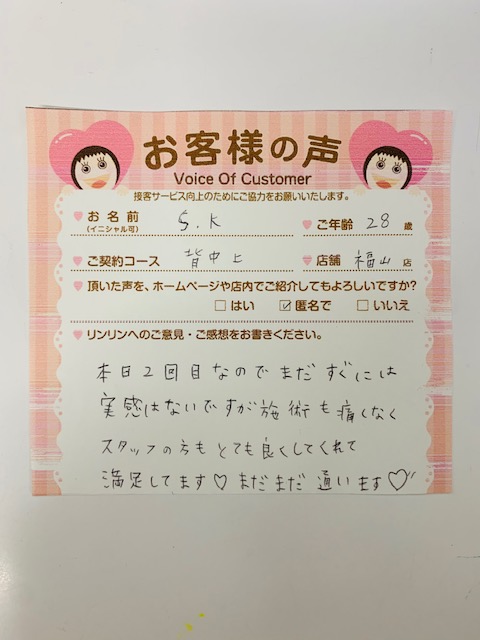 お客様の声
Voice Of Customer
接客サービス向上のためにご協力をお願いいたします。
お名前 S.K ご年齢 28 歳
(イニシャル可)
ご契約コース 背中上 店舗 福山 店
頂いた声を、ホームページや店内でご紹介してもよろしいですか?
□はい ☑匿名で □いいえ
リンリンへのご意見・ご感想をお書きください。
本日2回目なのでまだすぐには
実感はないですが施術も痛くなく
スタッフの方もとても良くしてくれて
満足してます♡まだまだ通います♡